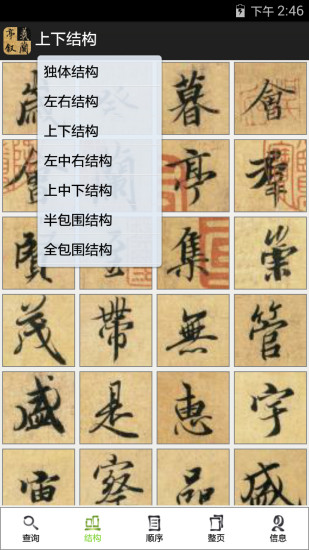 下午 2:46
上下结构
独体结构
左右结构
上下结构
左中右结构
上中下结构
半包围结构
全包围结构
歲 癸 暮 會
會 蘭 亭 羣
賢 至 集 崇
茂 帶 無 管
盛 是 惠 宇
宙 察 品 盛
查询 结构 顺序 整页 信息